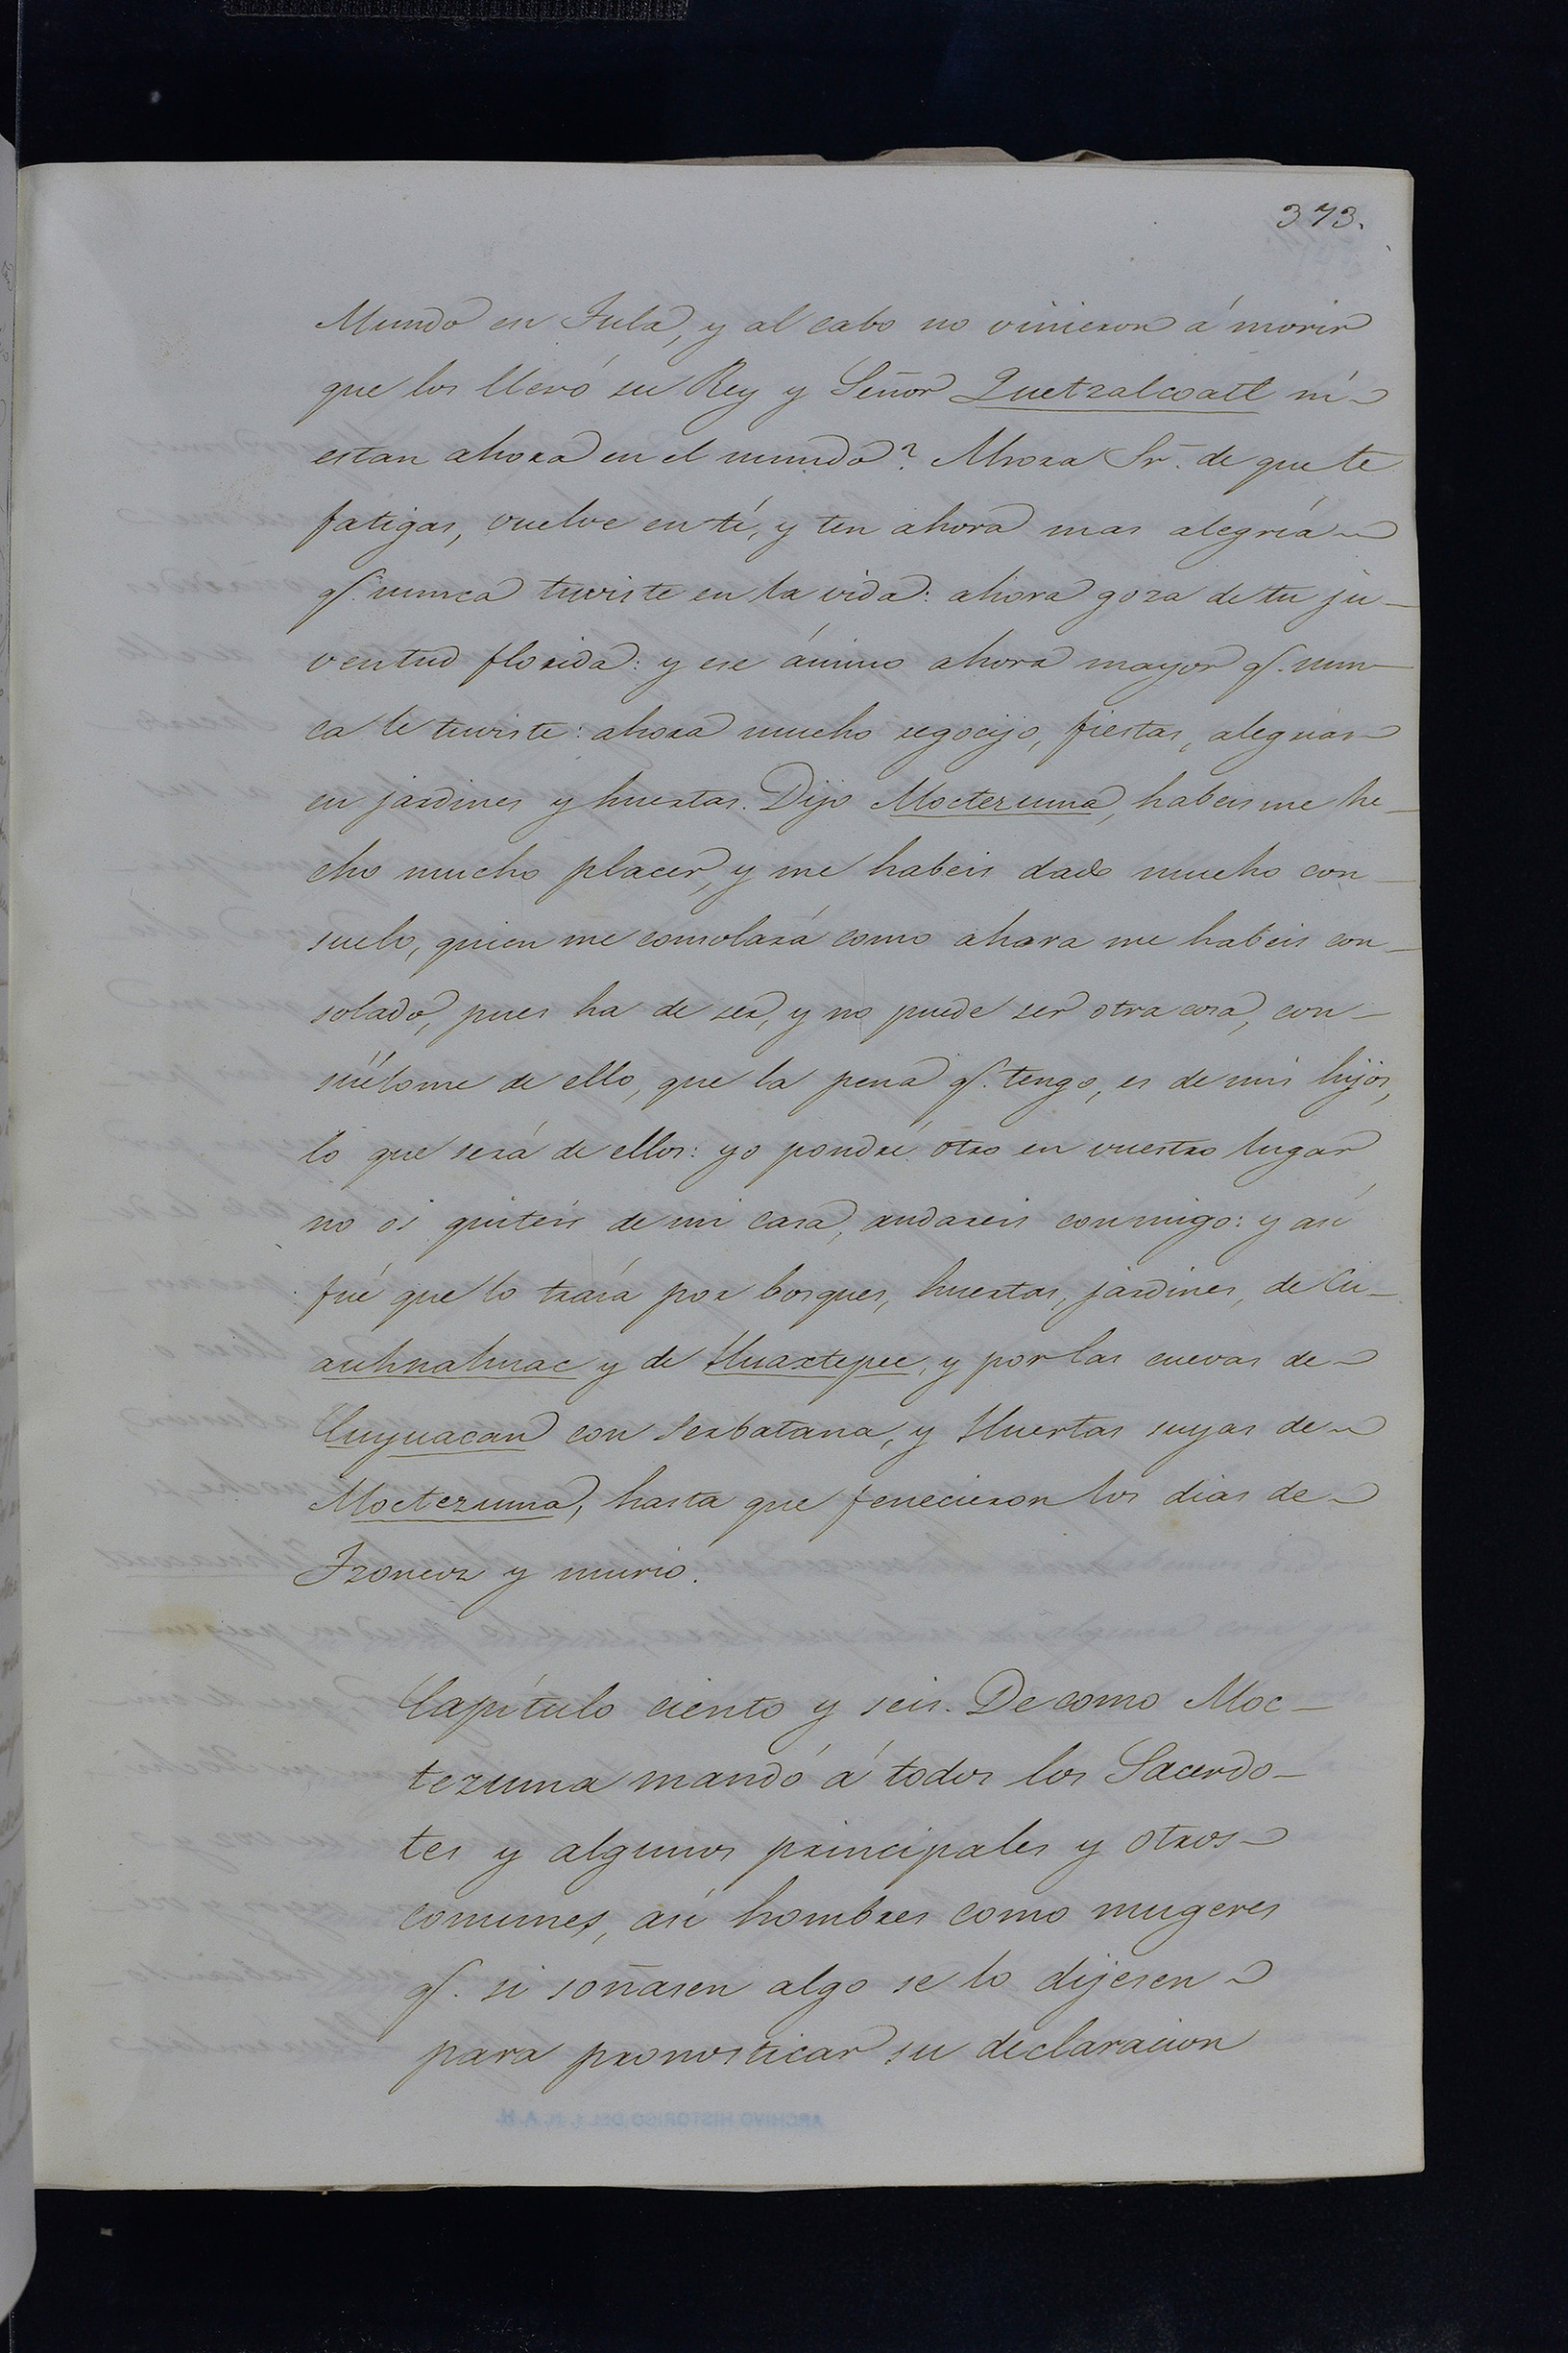 373.
Mundo en Tula, y al cabo no vinieron á morir
que los llevó su Rey y Señor Quetzalcoatl ni
estan ahora en el mundo? Ahora Sr. de que te
fatigas, vuelve en tí, y ten ahora mas alegría
q. nunca tuviste en la vida: ahora goza de tu ju-
ventud florida: y ese ánimo ahora mayor q. nun-
ca le tuviste: ahora mucho regocijo, fiestas, alegrias
en jardines y huertas. Dijo Moctezuma, habeis me he-
cho mucho placer, y me habeis dado mucho con-
suelo, quien me consolará como ahora me habeis con-
solado, pues ha de ser, y no puede ser otra cosa, con-
suélome de ello, que la pena q. tengo, es de mis hijos,
lo que será de ellos: yo pondré otro en vuestro lugar
no os quiteis de mi casa, andareis conmigo: y así
fué que lo traía por bosques, huertas, jardines, de Cu-
auhnahuac y de Huaxtepec, y por las cuevas de
Cuyuacan con serbatana, y Huertas suyas de
Moctezuma, hasta que fenecieron los dias de
Tzoncoz y murio.
Capítulo ciento y seis. De como Moc-
tezuma mandó á todos los Sacerdo-
tes y algunos principales y otros
comunes, así hombres como mugeres
q. si soñasen algo se lo dijesen
para pronosticar su declaracion
ARCHIVO HISTORICO DEL I. N. A. H.